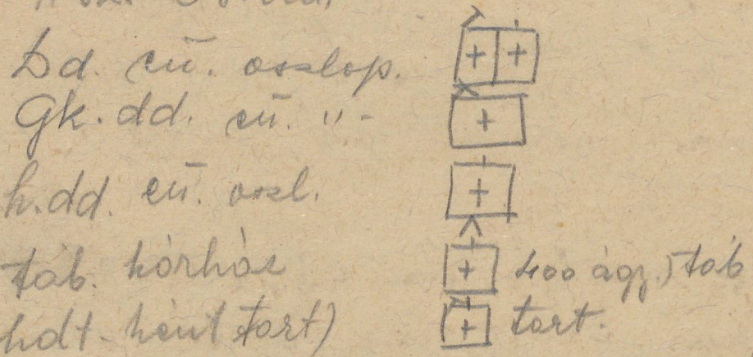 Dd. eü. oszlop.
Gk. dd. eü. "-
h. dd. eü. oszl.
táb. kórház 400 ágy.) táb
hdt. tart) tart.